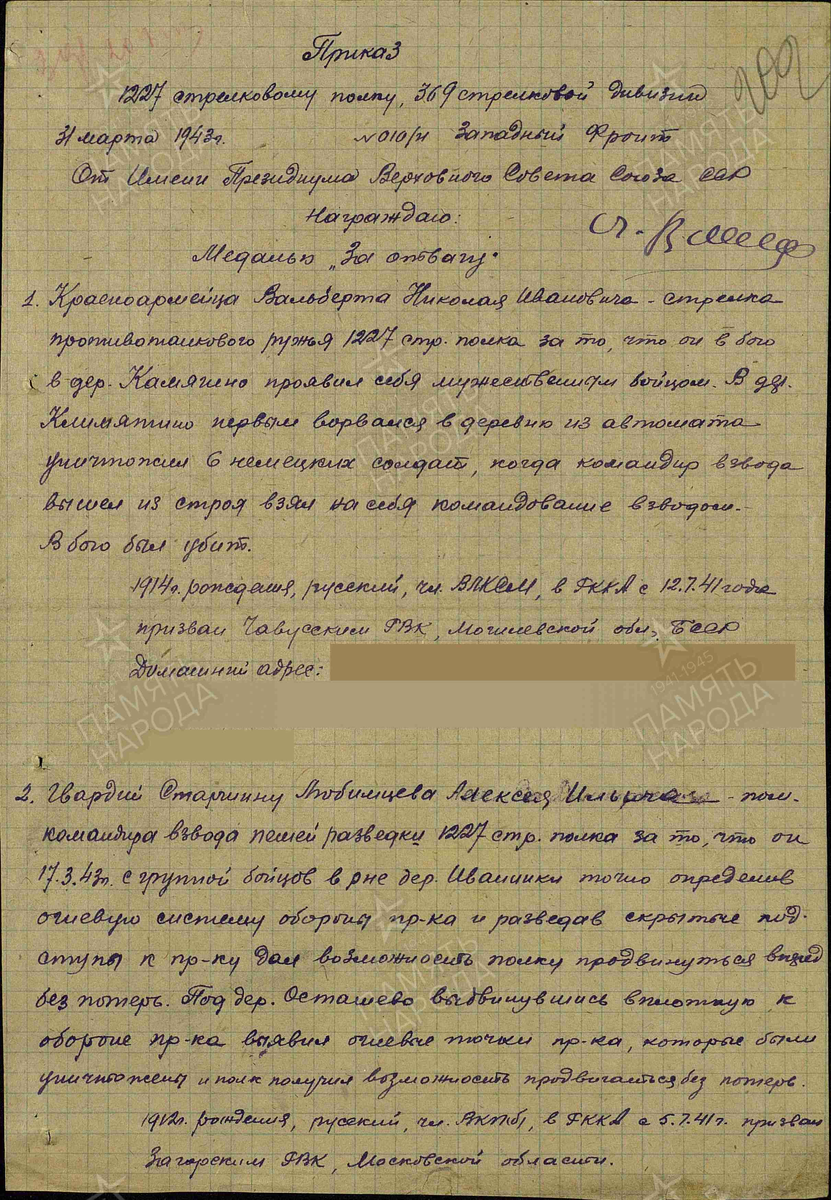 Приказ
1227 стрелковому полку, 369 стрелковой дивизии
31 марта 1943г. №010/н Западный Фронт
От Имени Президиума Верховного Совета Союза ССР
Награждаю:
Медалью „За отвагу"
1. Красноармейца Вальберта Николая Ивановича - стрелка
противотанкового ружья 1227 стр. полка за то, что он в бою
в дер. Камягино проявил себя мужественным бойцом. В дер.
Климятино первым ворвался в деревню из автомата
уничтожил 6 немецких солдат, когда командир взвода
вышел из строя взял на себя командование взводом.
В бою был убит.
1914г. рождения, русский, чл. ВЛКСМ, в РККА с 12.7.41 года
призван Чавусским РВК, Могилевской обл., БССР
Домашний адрес:
2. Гвардии Старшину Любимцева Алексея Ильича - пом.
командира взвода пешей разведки 1227 стр. полка за то, что он
17.3.43г. с группой бойцов в р-не дер. Иванники точно определив
огневую систему обороны пр-ка и разведав скрытые под-
ступы к пр-ку дал возможность полку продвинуться вперед
без потерь. Под дер. Осташево выдвинувшись вплотную к
обороне пр-ка выявил огневые точки пр-ка, которые были
уничтожены и полк получил возможность продвигаться без потерь.
1912г. рождения, русский, чл. ВКП(б), в РККА с 5.7.41г. призван
Загорским РВК, Московской области.
1941-1945
ПАМЯТЬ
НАРОДА